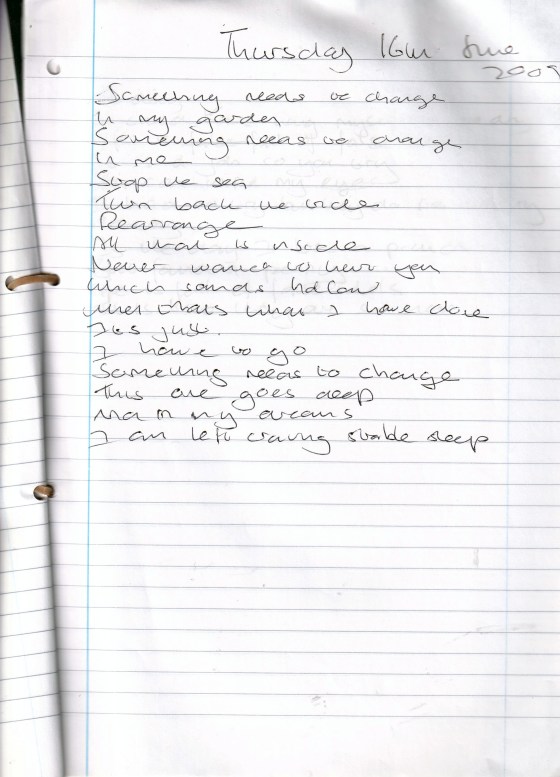 Thursday 16th June
2005
Something needs to change
In my garden
Something needs to change
In me
Stop the sea
Turn back the tide
Rearrange
All that is inside
Never wanted to hurt you
Which sounds hollow
When thats what I have done
Its just.
I have to go
Something needs to change
This one goes deep
in my dreams
I am left craving stable sleep